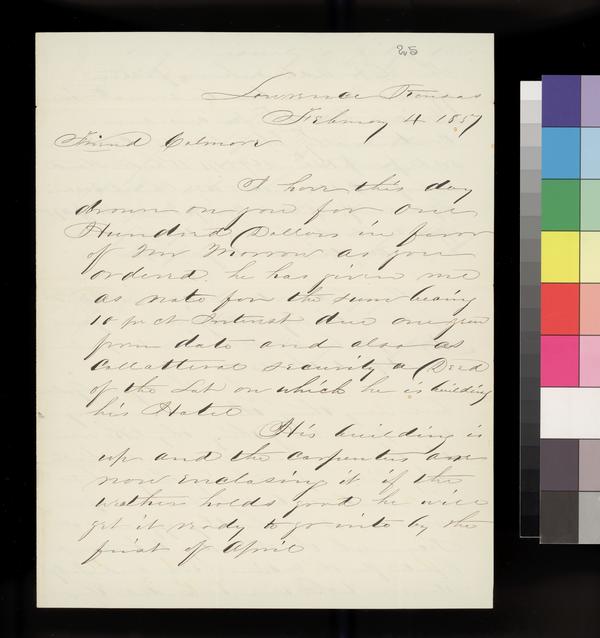 25
Lawrence Kansas
February 4 1857
Friend Colmore
I have this day
drawn on you for One
Hundred Dollars in favor
of Mr Morrow as you
ordered. he has given me
as note for the sum bearing
10 pr ct Interest due one year
from date and also as
Collatteral security a Deed
of the Lot on which he is building
his Hotel
His building is
up and the carpenters are
now enclosing it if the
weather holds good he will
get it ready to go into by the
first of April